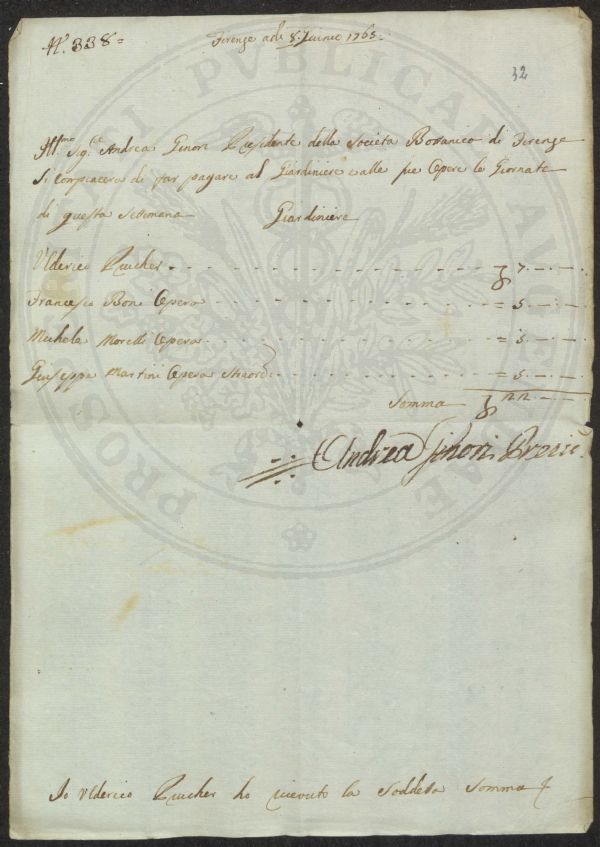 N.º 338=
Firenze adì 8. Giunio 1765.
32
Ill.mo Sig.re Andrea Ginori Presidente della Società Bottanica di Firenze
Si compiacerà di far pagare al Giardiniere e alle sue Opere le Giornate
di questa Settimana
Giardiniere
Ulderico Prucher - - - 7. - -
Francesco Boni Opera - - - = 5 - -
Michele Morelli Opera - - - = 5 - -
Giuseppe Martini Opera - - - = 5 - -
Somma 22 - -
Andrea Ginori Presid.
Io Ulderico Prucher ho riceuto la Soddetta Somma
PROSPERITATI PUBLICAE AUGENDAE